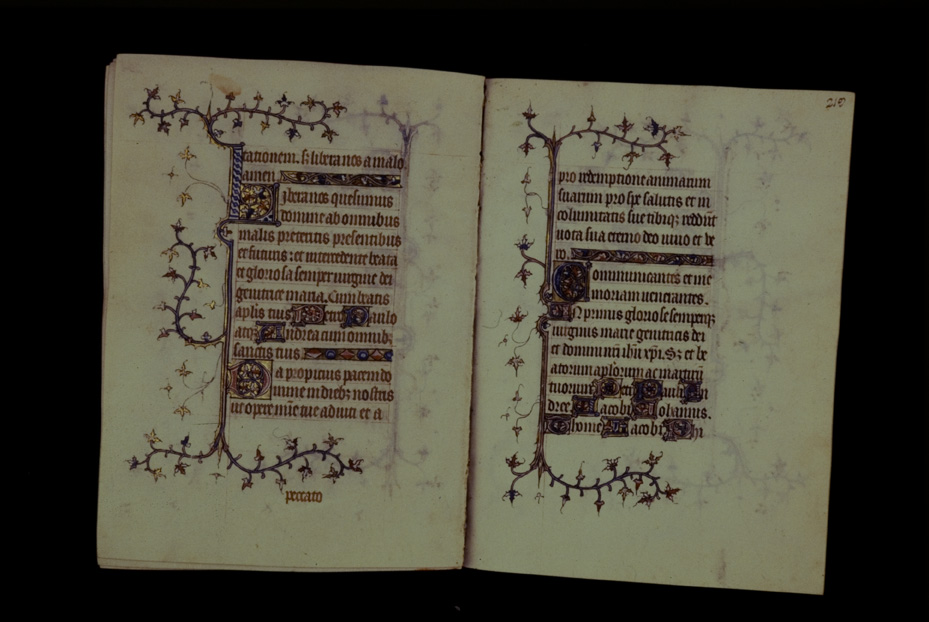 tationem. sz libera nos a malo
amen
Libera nos quesumus
domine ab omnibus
malis preteritis presentibus
et futuris : et intercedente beata
et gloriosa semper uirgine dei
genitrice maria. Cum beatis
aplis tuis Petro Paulo
atqz Andrea cum omnibz
sanctis tuis
Da propicius pacem do
mine in diebz nostris
ut ope mie tue adiuti et a
peccato
210
pro redemptione animarum
suarum pro spe salutis et in
columitatis sue tibiqz reddunt
uota sua eterno deo uiuo et ue
ro.
Communicantes et me
moriam uenerantes.
In primis gloriose semperqz
uirginis marie genitricis dei
et domini nri ihu xpi. Sz et be
atorum aplorum ac martirum
tuorum Petri Pauli An
dree. Jacobi Johannis.
Thome Jacobi Phi